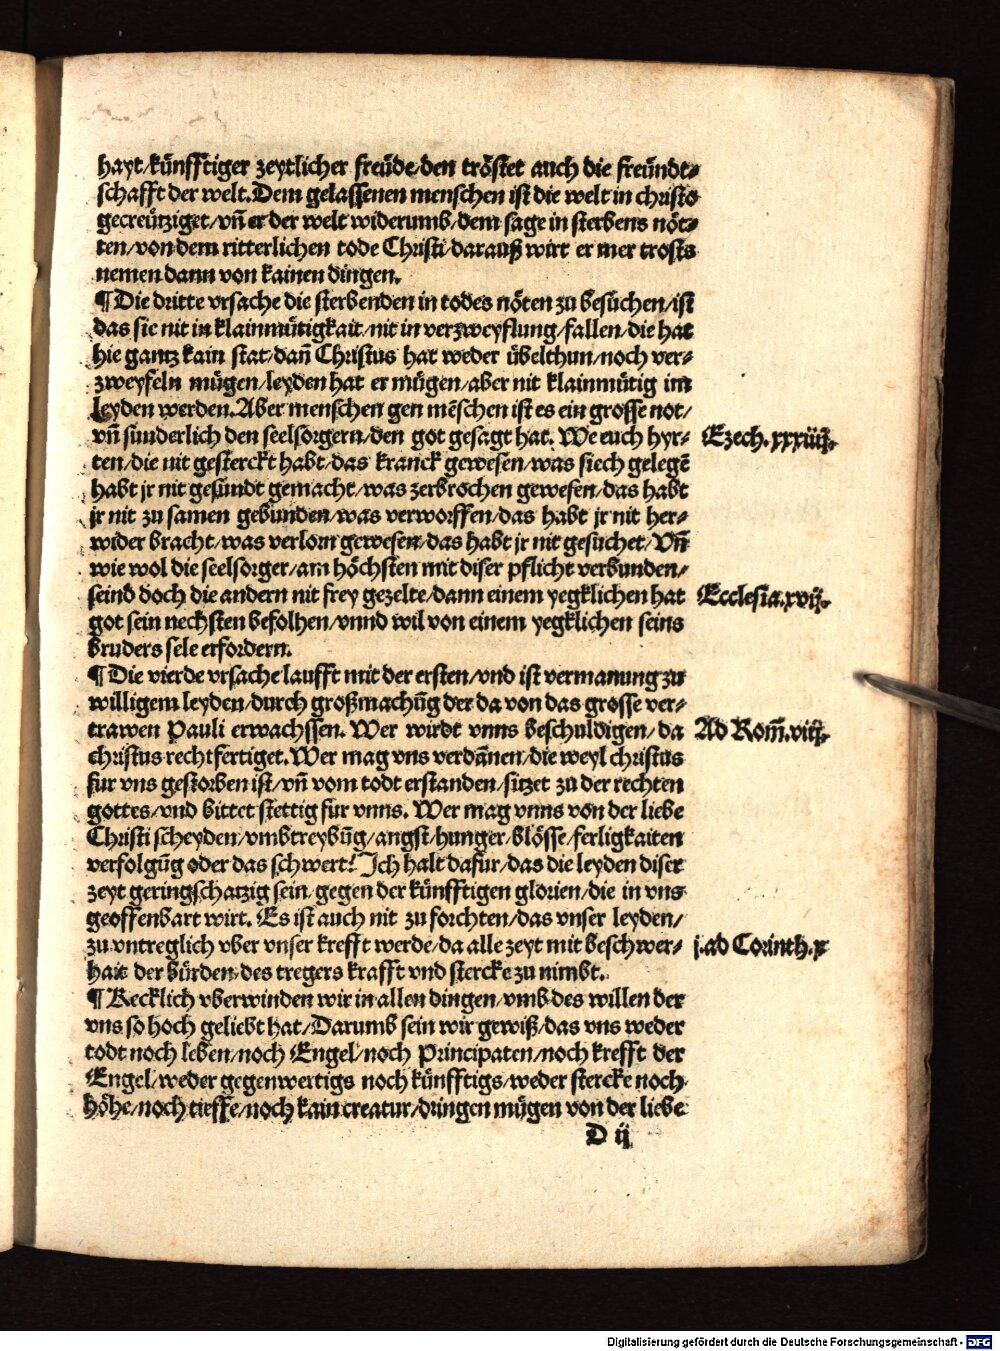 hayt/künfftiger zeytlicher freüde/den tröstet auch die freündt⸗
schafft der welt. Dem gelassenen menschen ist die welt in christo
gecreütziget/vñ er der welt widerumb/dem sage in sterbens nöt⸗
ten/von dem ritterlichen tode Christi/darauß wirt er mer trosts
nemen dann von kainen dingen.
¶ Die dritte vrsache die sterbenden in todes nöten zu besuchen/ist
das sie nit in klainmütigkait/nit in verzweyflung/fallen/die hat
hie gantz kain stat/dañ Christus hat weder übelthun/noch ver⸗
zweyfeln mügen/leyden hat er mügen/aber nit klainmütig im
leyden werden. Aber menschen gen mēschen ist es ein grosse not/
vñ sunderlich den seelsorgern/den got gesagt hat. We euch hyr⸗
Ezech. xxxiiij.
ten/die nit gesterckt habt/das kranck gewesen/was siech gelegē
habt jr nit gesundt gemacht/was zerbrochen gewesen/das habt
jr nit zu samen gebunden/was verworffen/das habt jr nit her⸗
wider bracht/was verlorn gewesen/das habt jr nit gesuchet/Vñ
wie wol die seelsorger/am höchsten mit diser pflicht verbunden/
seind doch die andern nit frey gezelte/dann einem yegklichen hat
Ecclesia. xvij.
got sein nechsten befolhen/vnnd wil von einem yegklichen seins
bruders sele erfordern.
¶ Die vierde vrsache laufft mit der ersten/vnd ist vermanung zu
willigem leyden/durch großmachūg der da von das grosse ver⸗
trawen Pauli erwachssen. Wer wirdt vnns beschuldigen/da
Ad Rom̄. viij.
christus rechtfertiget. Wer mag vns verdāmen/die weyl christus
fur vns gestorben ist/vñ vom todt erstanden/sitzet zu der rechten
gottes/vnd bittet stettig fur vnns. Wer mag vnns von der liebe
Christi scheyden/vmbtreybūg/angst/hunger/blösse/ferligkaiten
verfolgūg oder das schwert? Ich halt dafur/das die leyden diser
zeyt geringschatzig sein/gegen der künfftigen glorien/die in vns
geoffenbart wirt. Es ist auch nit zu forchten/das vnser leyden/
zu vntreglich vber vnser krefft werde/da alle zeyt mit beschwer⸗
j. ad Corinth. x
hait der bürden/des tregers krafft vnd stercke zu nimbt.
¶ Kecklich vberwinden wir in allen dingen/vmb des willen der
vns so hoch geliebt hat/Darumb sein wir gewiß/das vns weder
todt noch leben/noch Engel/noch Principaten/noch krefft der
Engel/weder gegenwertigs noch künfftigs/weder stercke noch
höhe/noch tieffe/noch kain creatur/dringen mügen von der liebe
D ij
Digitalisierung gefördert durch die Deutsche Forschungsgemeinschaft - DFG